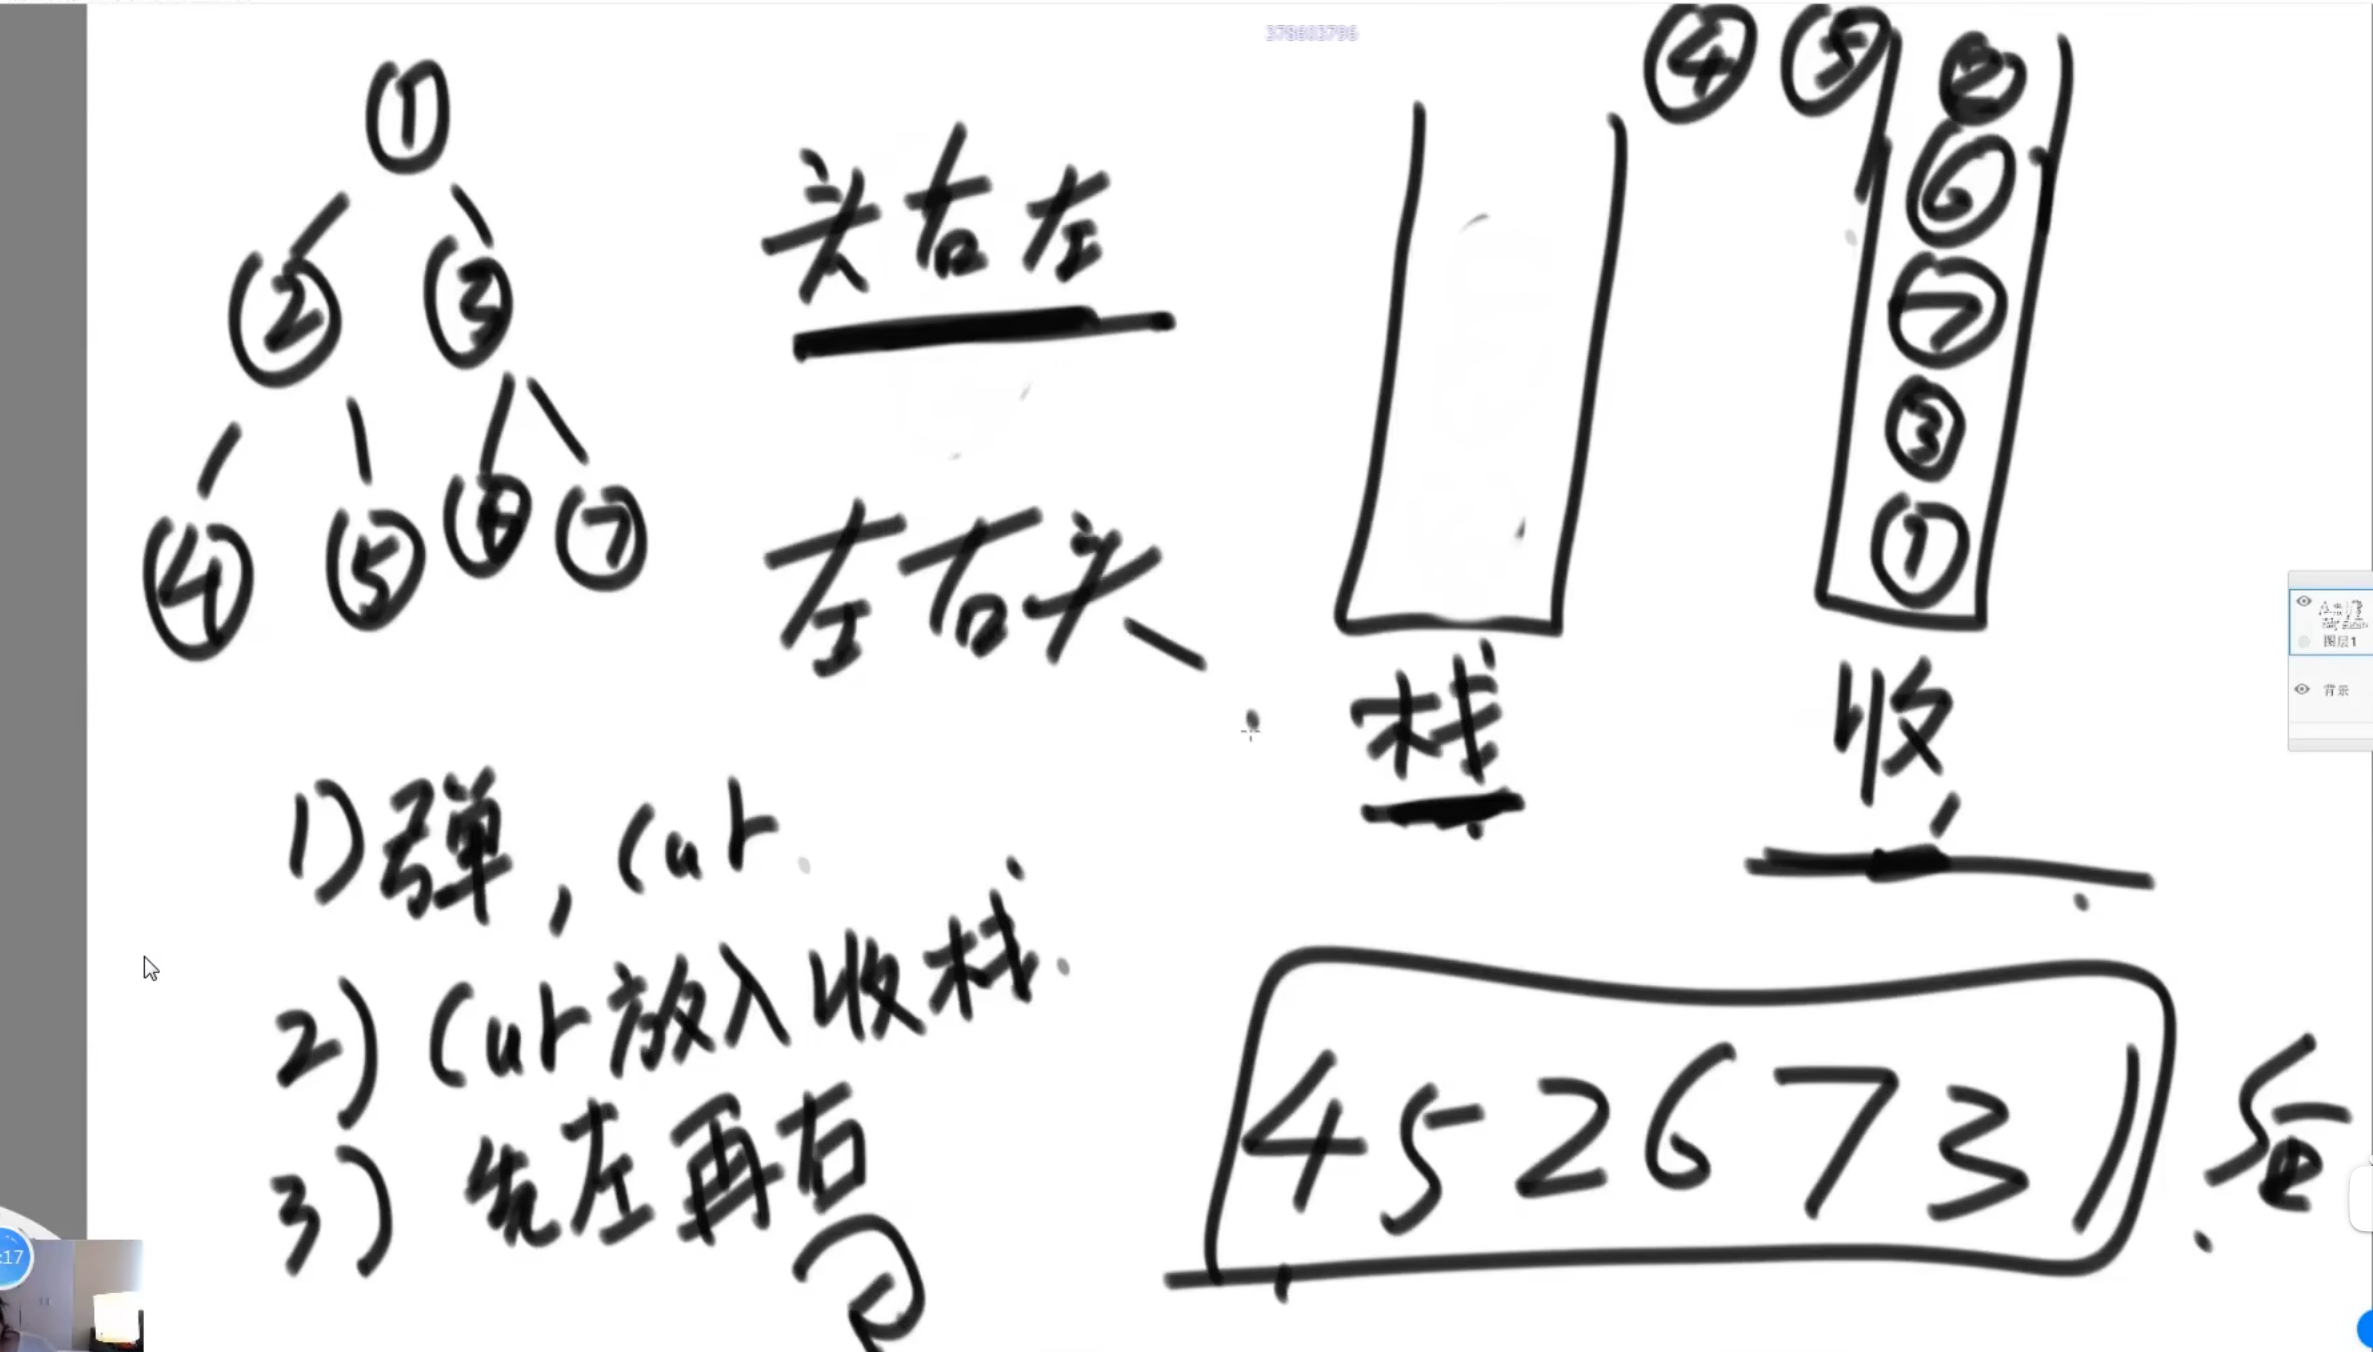 378603796
① ② ③ ④ ⑤ ⑥ ⑦
头右左
左右头
④ ⑤
②
⑥
⑦
③
①
栈
收
1) 弹, cur
2) cur放入收栈.
3) 先左再右
4 5 2 6 7 3 1
图层1
背景
:17